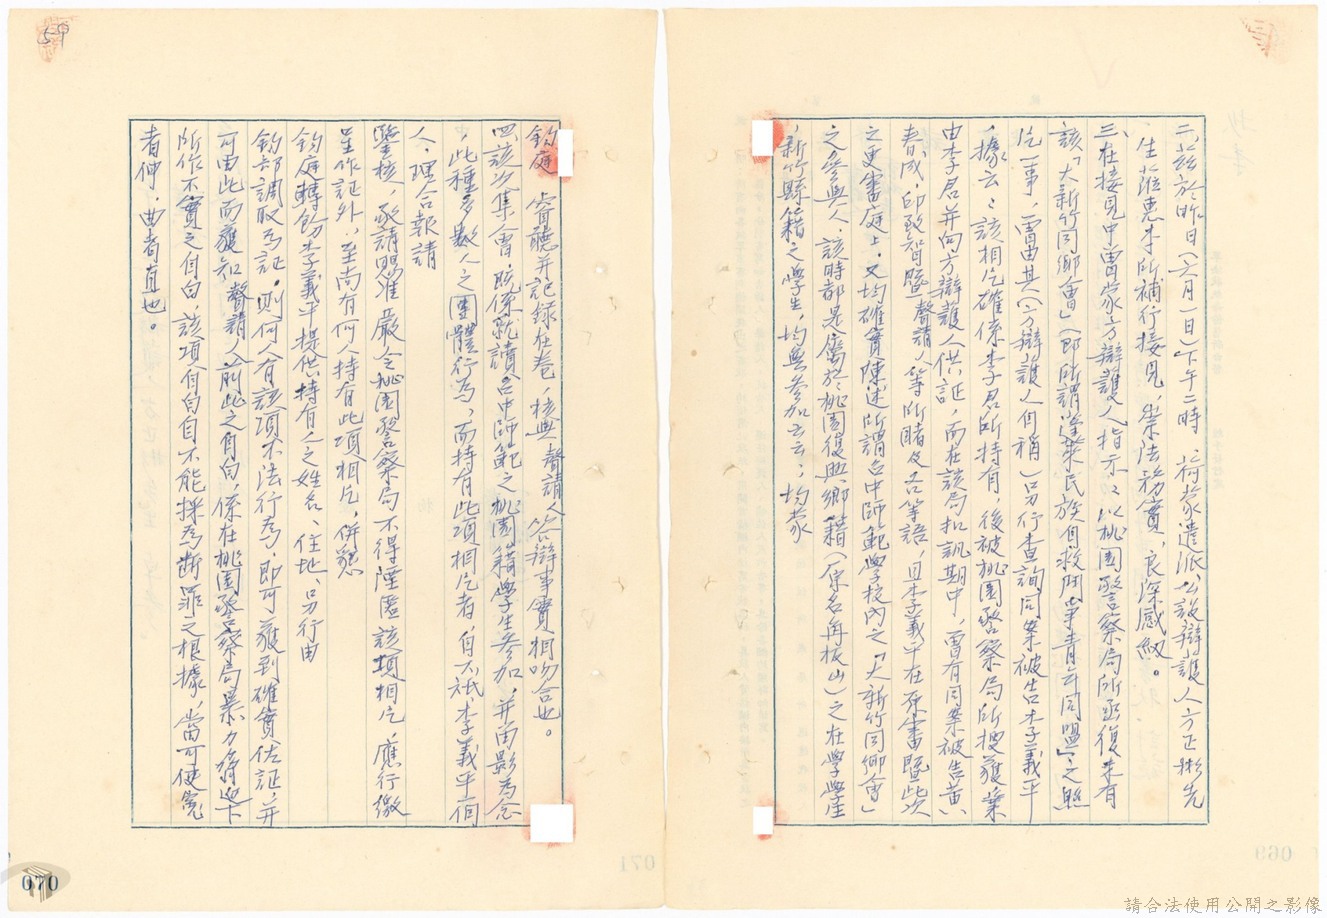 二、茲於昨日(六月一日)下午二時,荷蒙遣派公設辯護人方正彬先
生蒞惠予所補行接見,崇法務實,良深感紉。
三、在接見中曾蒙方辯護人指示:以桃園警察局所函復未有
該「大新竹同鄉會」(即所謂蓬萊民族自救鬥爭青年同盟)之照
片一事,曾由其(方辯護人自稱)另行查詢同案被告李義平
,據云:該相片確係李君所持有,後被桃園警察局所搜獲,業
由李君并向方辯護人供証,而在該局扣訊期中,曾有同案被告黃
春成,印致智暨聲請人等所睹及各等語,且李義平在原審暨此次
之更審庭上,又均確實陳述所謂台中師範學校內之「大新竹同鄉會」
之參與人,該時都是屬於桃園復興鄉籍(原名角板山)之在學學生
,新竹縣籍之學生,均無參加云云;均蒙
鈞庭審聽并記錄在卷,核與聲請人答辯事實相吻合也。
四、該次集會既係就讀台中師範之桃園籍學生參加,并留影為念
,此種多數人之團體行為,而持有此項相片者,自不祇李義平一個
人,理合報請
鑒核,敬請賜准嚴令桃園警察局不得隱匿該項相片,應行繳
呈作証外,至尚有何人持有此項相片,併懇
鈞庭轉飭李義平提供持有人之姓名、住地,另行由
鈞部調取為証,則何人有該項不法行為,即可獲到確實佐証,并
可由此而獲知聲請人前此之自白,係在桃園警察局暴力脅迫下
所作不實之自白,該項自白自不能採為斷罪之根據,當可使冤
者伸,曲者直也。
59
070
071
069
請合法使用公開之影像